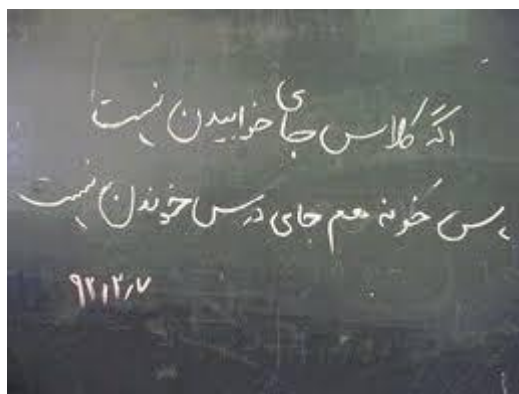 اگه کلاس جای خوابیدن نیست
پس خونه هم جای درس خوندن نیست
۹۲٫۳٫۷